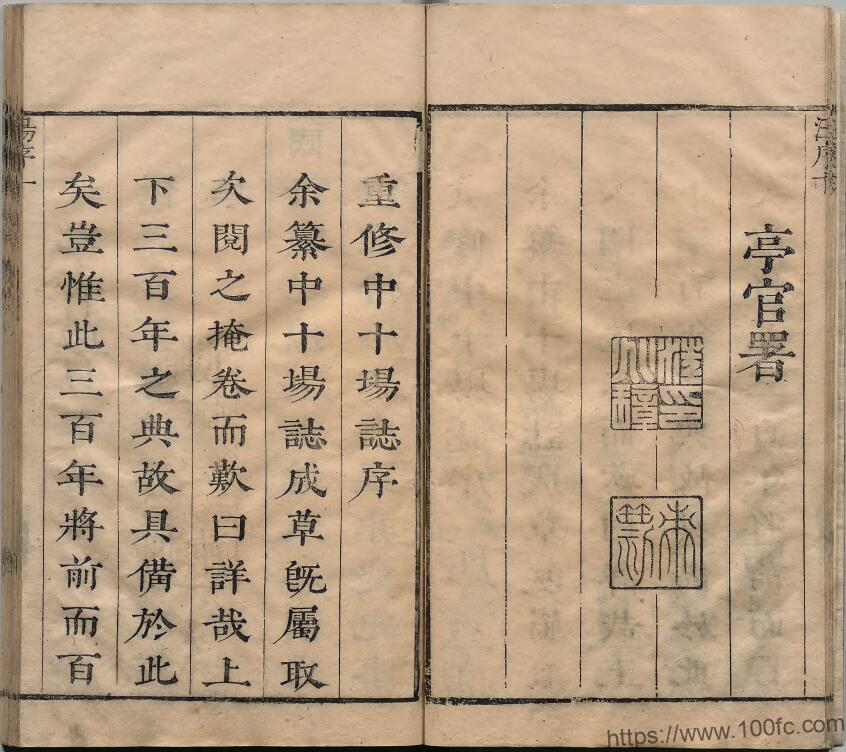 亭官署
重修中十場誌序
余纂中十場誌成草旣屬取
次閱之掩卷而歎曰詳哉上
下三百年之典故具備於此
矣豈惟此三百年將前而百
https://www.100fc.com